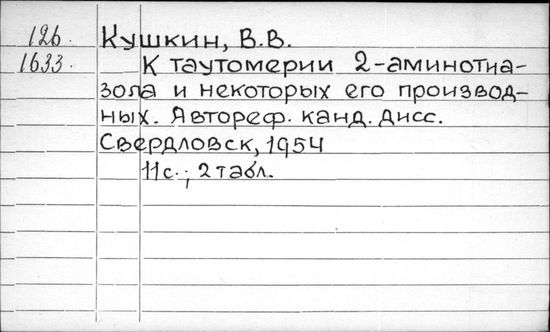 126. Кушкин, В.В.
1633. К таутомерии 2-аминотиа-
зола и некоторых его производ-
ных. Автореф. канд. дисс.
Свердловск, 1954
11с.; 2 табл.